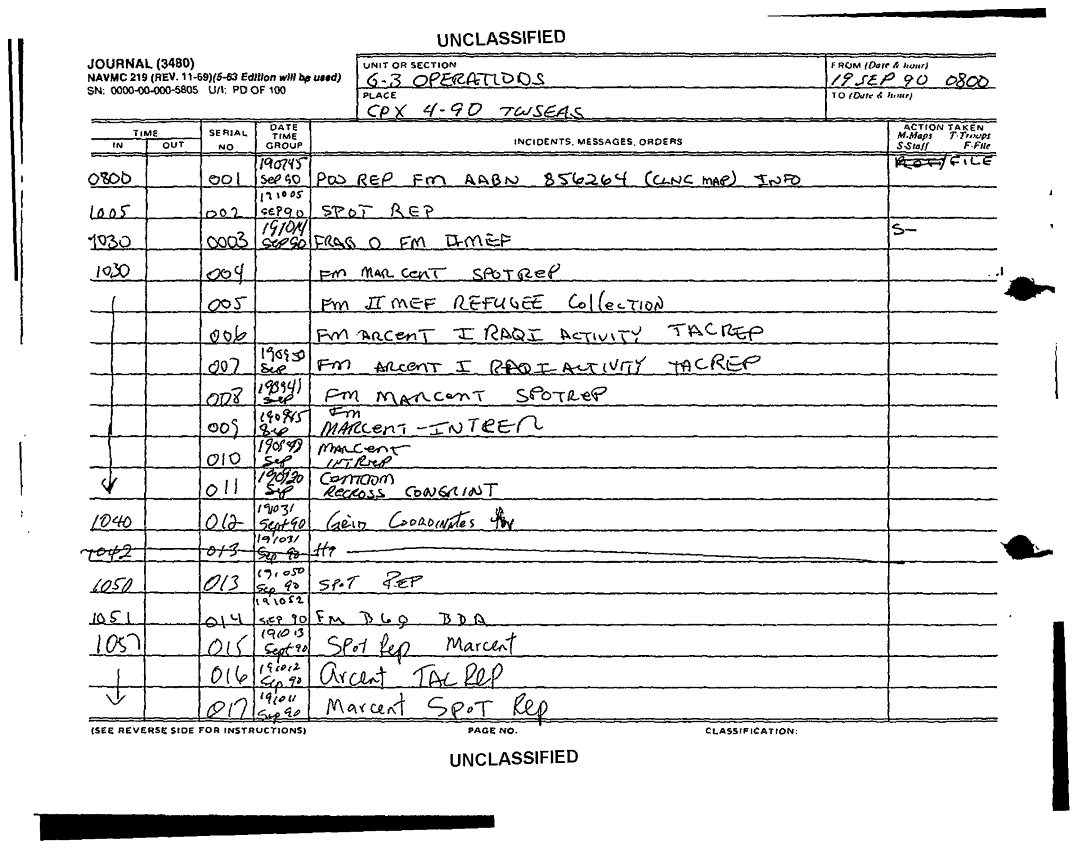 UNCLASSIFIED
JOURNAL (3480)
NAVMC 219 (REV. 11-69)(5-63 Edition will be used)
SN: 0000-00-000-5805 U/I: PD OF 100
UNIT OR SECTION
G-3 OPERATIOOS
FROM (Date & hour)
19 SEP 90 0800
PLACE
CPX 4-90 TWSEAS
TO (Date & hour)
TIME
IN OUT
SERIAL NO
DATE TIME GROUP
INCIDENTS, MESSAGES, ORDERS
ACTION TAKEN
M-Maps T-Troops
S-Staff F-File
0800 001 190745 Sep 90 POS REP FM AABN 856264 (CLNC MAP) INFO FILE
1005 002 191005 SEP 90 SPOT REP
1030 0003 Sep 90 FRAG O FM II MEF S-
1030 004 FM MARCENT SPOTREP
005 FM II MEF REFUGEE COllECTION
006 FM ARCENT IRAQI ACTIVITY TACREP
007 Sep FM ARCENT IRAQI ACTIVITY TACREP
008 Sep FM MARCENT SPOTREP
009 190945 Sep FM MARCENT-INTREP
010 Sep MARCENT INTREP
011 190920 Sep RECROSS
1040 012 Sept 90 Grid Coordinates
1042 013 191031 Sep 90
1050 013 191050 Sep 90 SPOT REP
1051 014 191052 SEP 90 FM BDA
1057 015 191013 Sept 90 SPot Rep Marcent
016 191012 Sep 90 Arcent TAC REP
017 191011 Sep 90 Marcent SPOT Rep
(SEE REVERSE SIDE FOR INSTRUCTIONS) PAGE NO. CLASSIFICATION:
UNCLASSIFIED